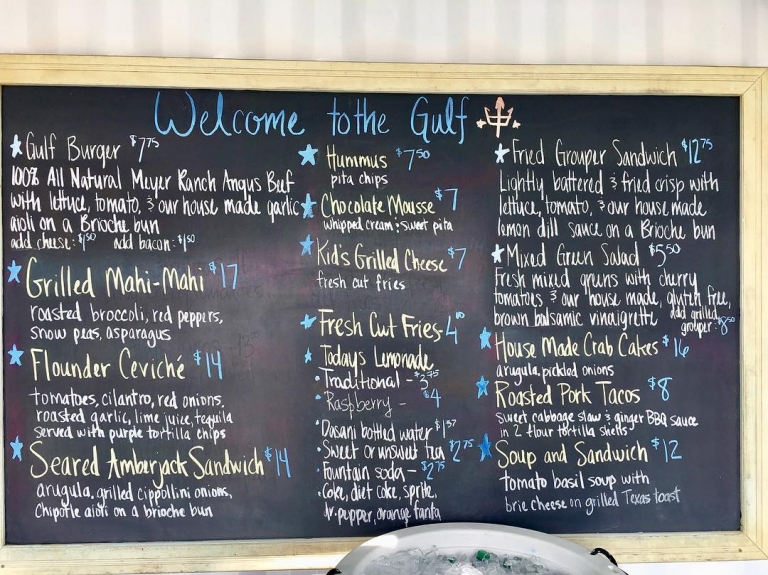 Welcome to the Gulf
Gulf Burger $7.75
100% All Natural Meyer Ranch Angus Beef
with lettuce, tomato, & our house made garlic
aioli on a Brioche bun
add cheese: $1.50 add bacon: $1.50
Grilled Mahi-Mahi $17
roasted broccoli, red peppers,
snow peas, asparagus
Flounder Ceviché $14
tomatoes, cilantro, red onions,
roasted garlic, lime juice, tequila
served with purple tortilla chips
Seared Amberjack Sandwich $14
arugula, grilled cippollini onions,
chipotle aioli on a brioche bun
Hummus $7.50
pita chips
Chocolate Mousse $7
whipped cream & sweet pita
Kid's Grilled Cheese $7
fresh cut fries
Fresh Cut Fries - 4
Todays Lemonade
• Traditional - $3.75
• Raspberry - $4
• Dasani bottled water $1.
• Sweet or unsweet tea $2.75
• Fountain soda - $2.75
• Coke, diet coke, sprite,
dr. pepper, orange fanta
Fried Grouper Sandwich $12.75
Lightly battered & fried crisp with
lettuce, tomato, & our house made
lemon dill sauce on a Brioche bun
Mixed Green Salad $5.50
Fresh mixed greens with cherry
tomatoes & our house made, gluten free,
brown balsamic vinaigrette add grilled
grouper: $8.50
House Made Crab Cakes $16
arugula, pickled onions
Roasted Pork Tacos $8
sweet cabbage slaw & ginger BBQ sauce
in 2 flour tortilla shells
Soup and Sandwich $12
tomato basil soup with
brie cheese on grilled Texas toast